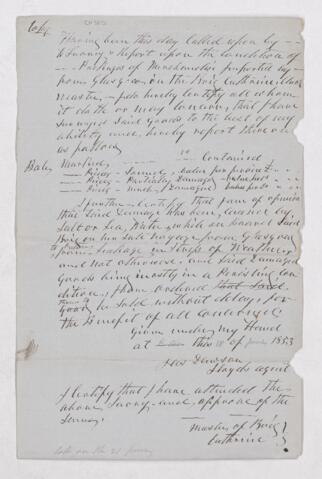 Copy
Having been this day Called upon by - -
to Survey & Report upon the Condition of
- - Packages of Merchandise purported by -
from Glasgow, on the Brig Catherine,
Master, - I do hereby Certify all whom
it doth or may Concern, that I have
Surveyed Said Goods to the best of my
ability and hereby report thereon
as follows
Bales Marked Contained
- - Pieces - Sound
- - Pieces - Partially Damaged
- - Pieces - Much Damaged
I further Certify that I am of opinion
that Said Damage has been Caused by
Salt or Sea Water while on board Said
Brig on her late voyage from Glasgow
to from Leakage in Stress of Weather
and not otherwise - and Said Damaged
Goods being mostly in a Perishing con
dition, I have ordered that Said
Goods be Sold without delay, for
the Benefit of all Concerned
Given under my Hand
at this 18 of June 1853
Dawson
Lloyds agent
I Certify that I have attended the
above Survey and approve of the
Same
Master of Brig
Catherine